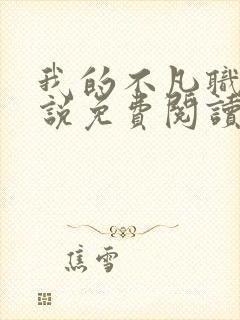 我的不凡職
說免費閱讀
焦雪